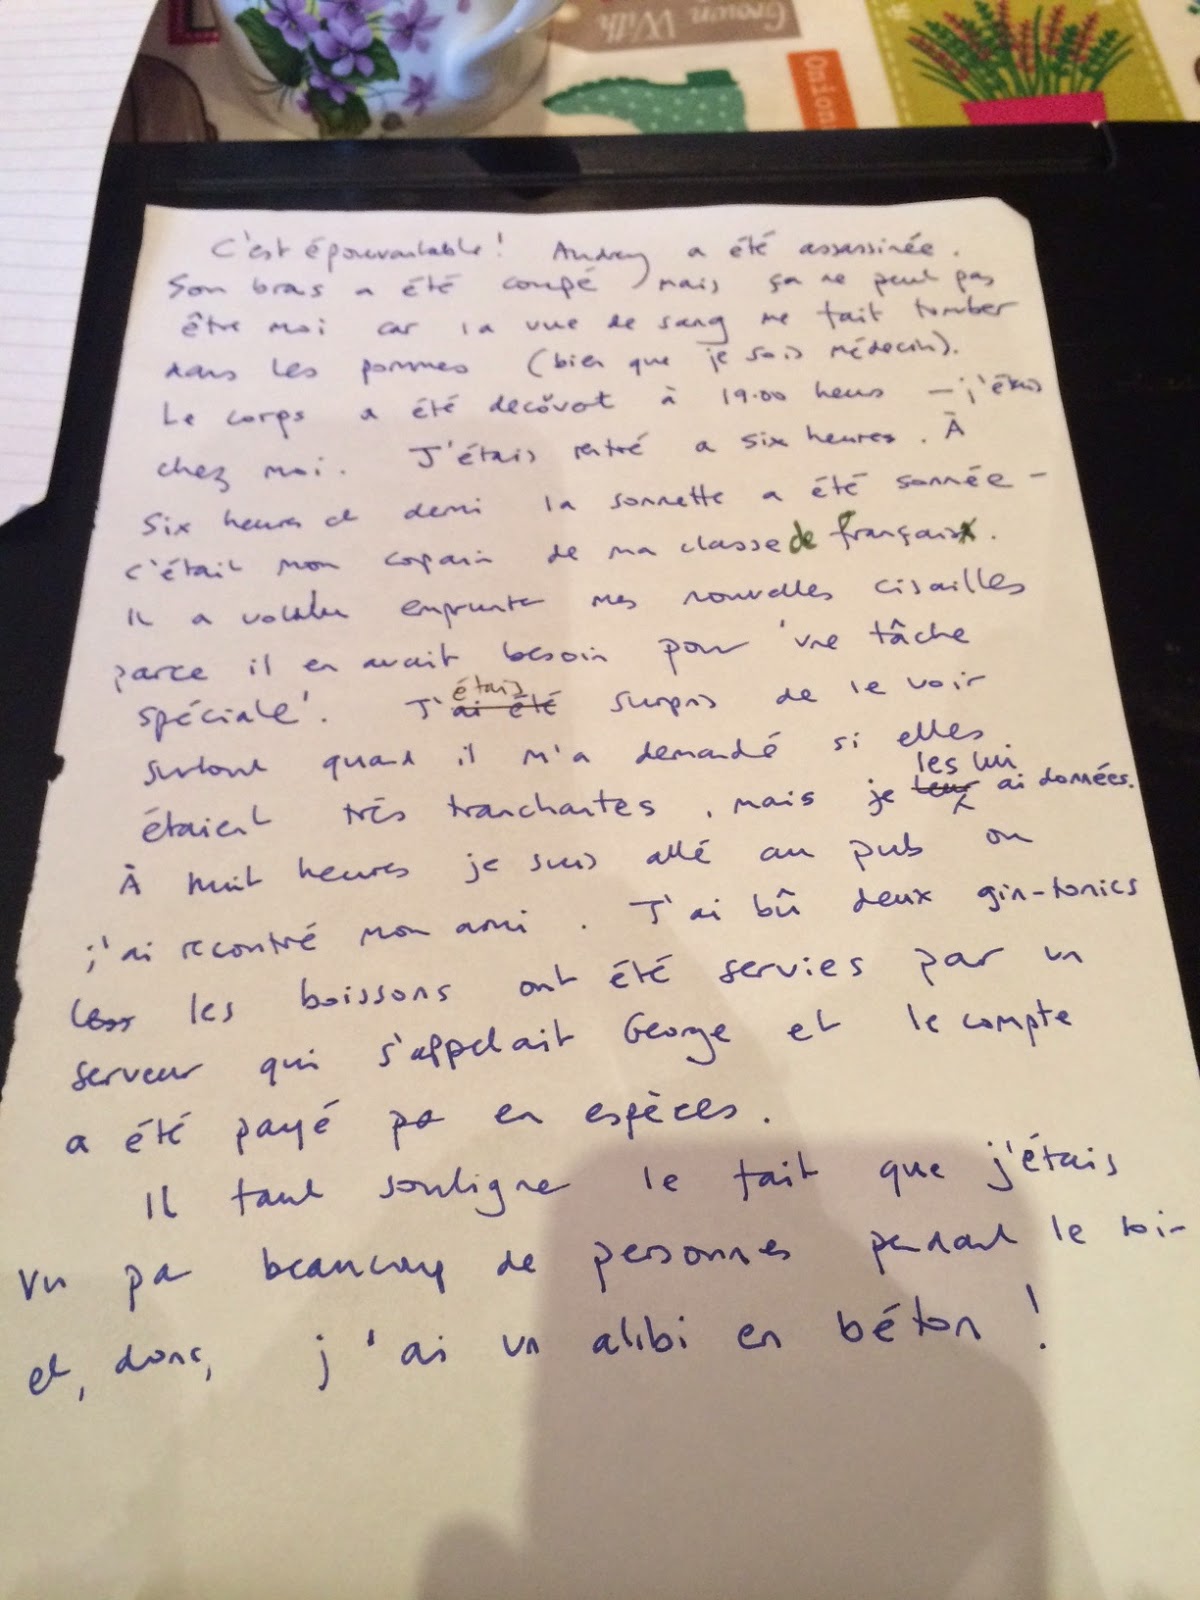 Grown With
Onion
C'est épouvantable! Audrey a été assassinée.
Son bras a été coupé mais ça ne peut pas
être moi car la vue de sang me fait tomber
dans les pommes (bien que je sois médecin).
Le corps a été decŏvot à 19.00 heurs – j'étais
chez moi. J'étais rentré a six heures. À
six heures et demi la sonnette a été sonnée –
c'était mon copain de ma classe de français.
Il a voulu emprunter mes nouvelles cisailles
parce il en avait besoin pour 'une tâche
spéciale'. J'ai été étais surpris de le voir
surtout quand il m'a demandé si elles
étaient très tranchantes, mais je leur les lui ai données.
À huit heures je suis allé au pub ou
j'ai recontré mon ami. J'ai bû deux gin-tonics
les boissons ont été servies par un
serveur qui s'appelait George et le compte
a été payé pa en espèces.
Il faut souligner le fait que j'étais
vu par beaucoup de personnes pendant le soi-
et, donc, j'ai un alibi en béton!